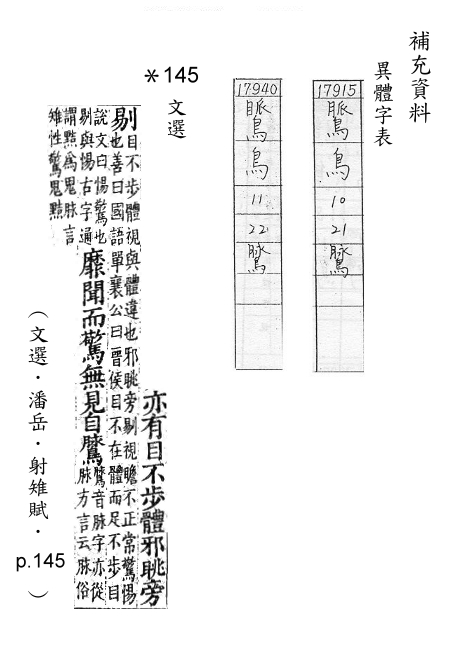 補充資料
異體字表
17915
鳥
10
21
17940
鳥
11
22
*145
文選
亦有目不步體邪眺旁
剔目不步體視與體違也邪眺旁剔視瞻不正常驚惕
也善曰國語單襄公曰晉侯目不在體而足不步目
說文曰惕驚也
剔與惕古字通
靡聞而驚無見自
音脉字亦從
脉方言云脉俗
謂黠為鬼脉言
雉性驚鬼黠
(文選.潘岳.射雉賦.p.145)